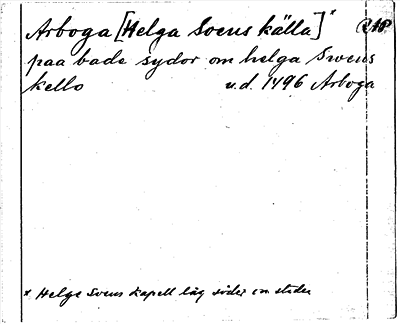 Arboga [Helga Svens källa]* RAP
paa bade sydor om helga Swens
kello u.d. 1496 Arboga
* Helge Svens kapell låg söder om staden